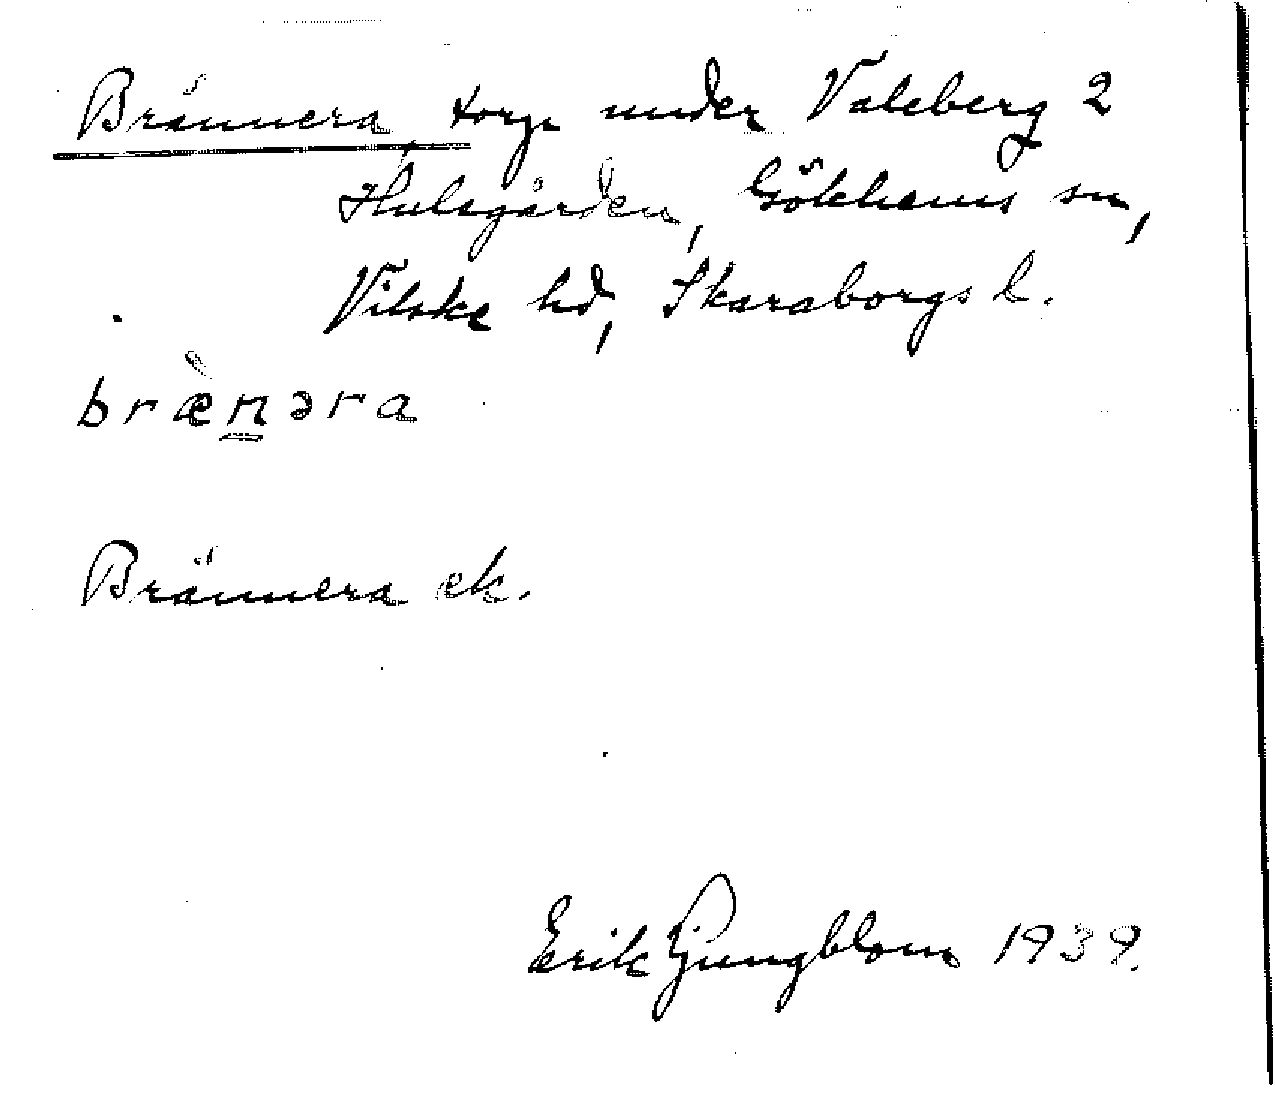 Brännera torp under Valeberg 2
Hulegården, Gökhems sn,
Vilske hd, Skaraborgs l.
bræ̀nəra
Brännera ek.
Erik Ljungblom 1939.